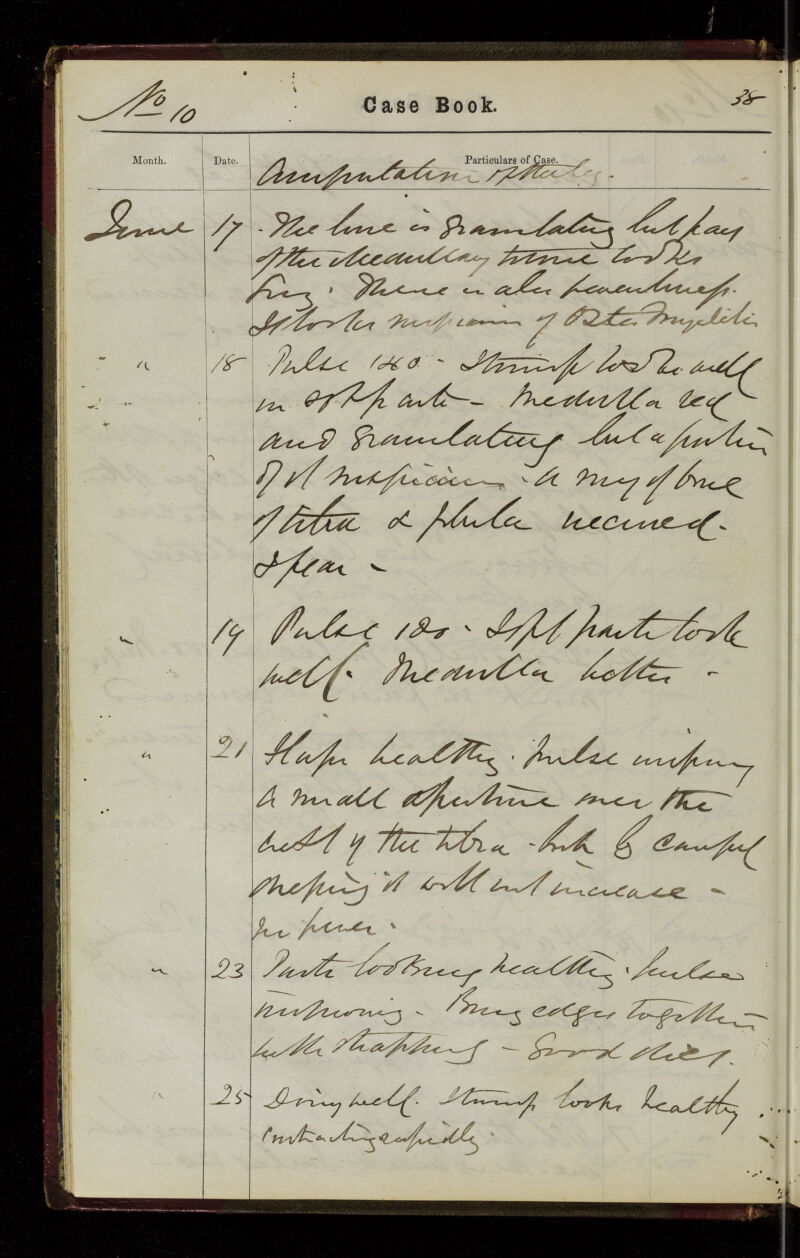 No 10
Case Book.
38
Month.
Date.
Particulars of Case.
Amputation of the leg.
June 17 . The bone is granulating but part
of the Medullary tissue looks
. There is also feverishness.
It looks suspicious of Osteo Myelitis
" 18 Pulse 140 - Stump looks well
in soft parts - Medulla red
and granulating but a portion
of it suspicious . A ring of bone
of tibia & fibula necrosed -
I fear -
" 19 Pulse 120 - Soft parts look
well. Medulla better -
" 21 Flaps healthy . Pulse improving
A small aperture over the
crest of the tibia - but by careful
dressing it will not increase -
no fever .
" 23 Parts looking healthy . Pulse
improving - Bring edges together
with strapping - Good diet .
" 25 Doing well . Stump looks healthy
contracting rapidly .